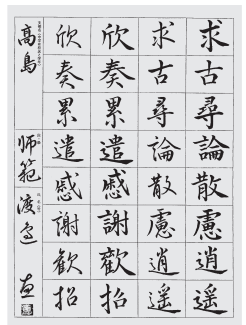 求古尋論散慮逍遥
求古尋論散慮逍遥
欣奏累遣慼謝歡招
欣奏累遣慼謝歡招
師範